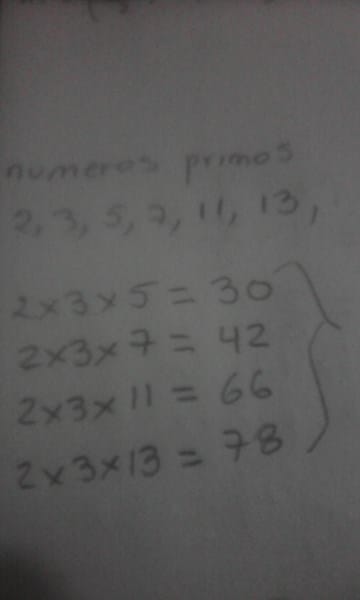 numeros primos
2, 3, 5, 7, 11, 13,
2x3x5 = 30
2x3x7 = 42
2x3x11 = 66
2x3x13 = 78